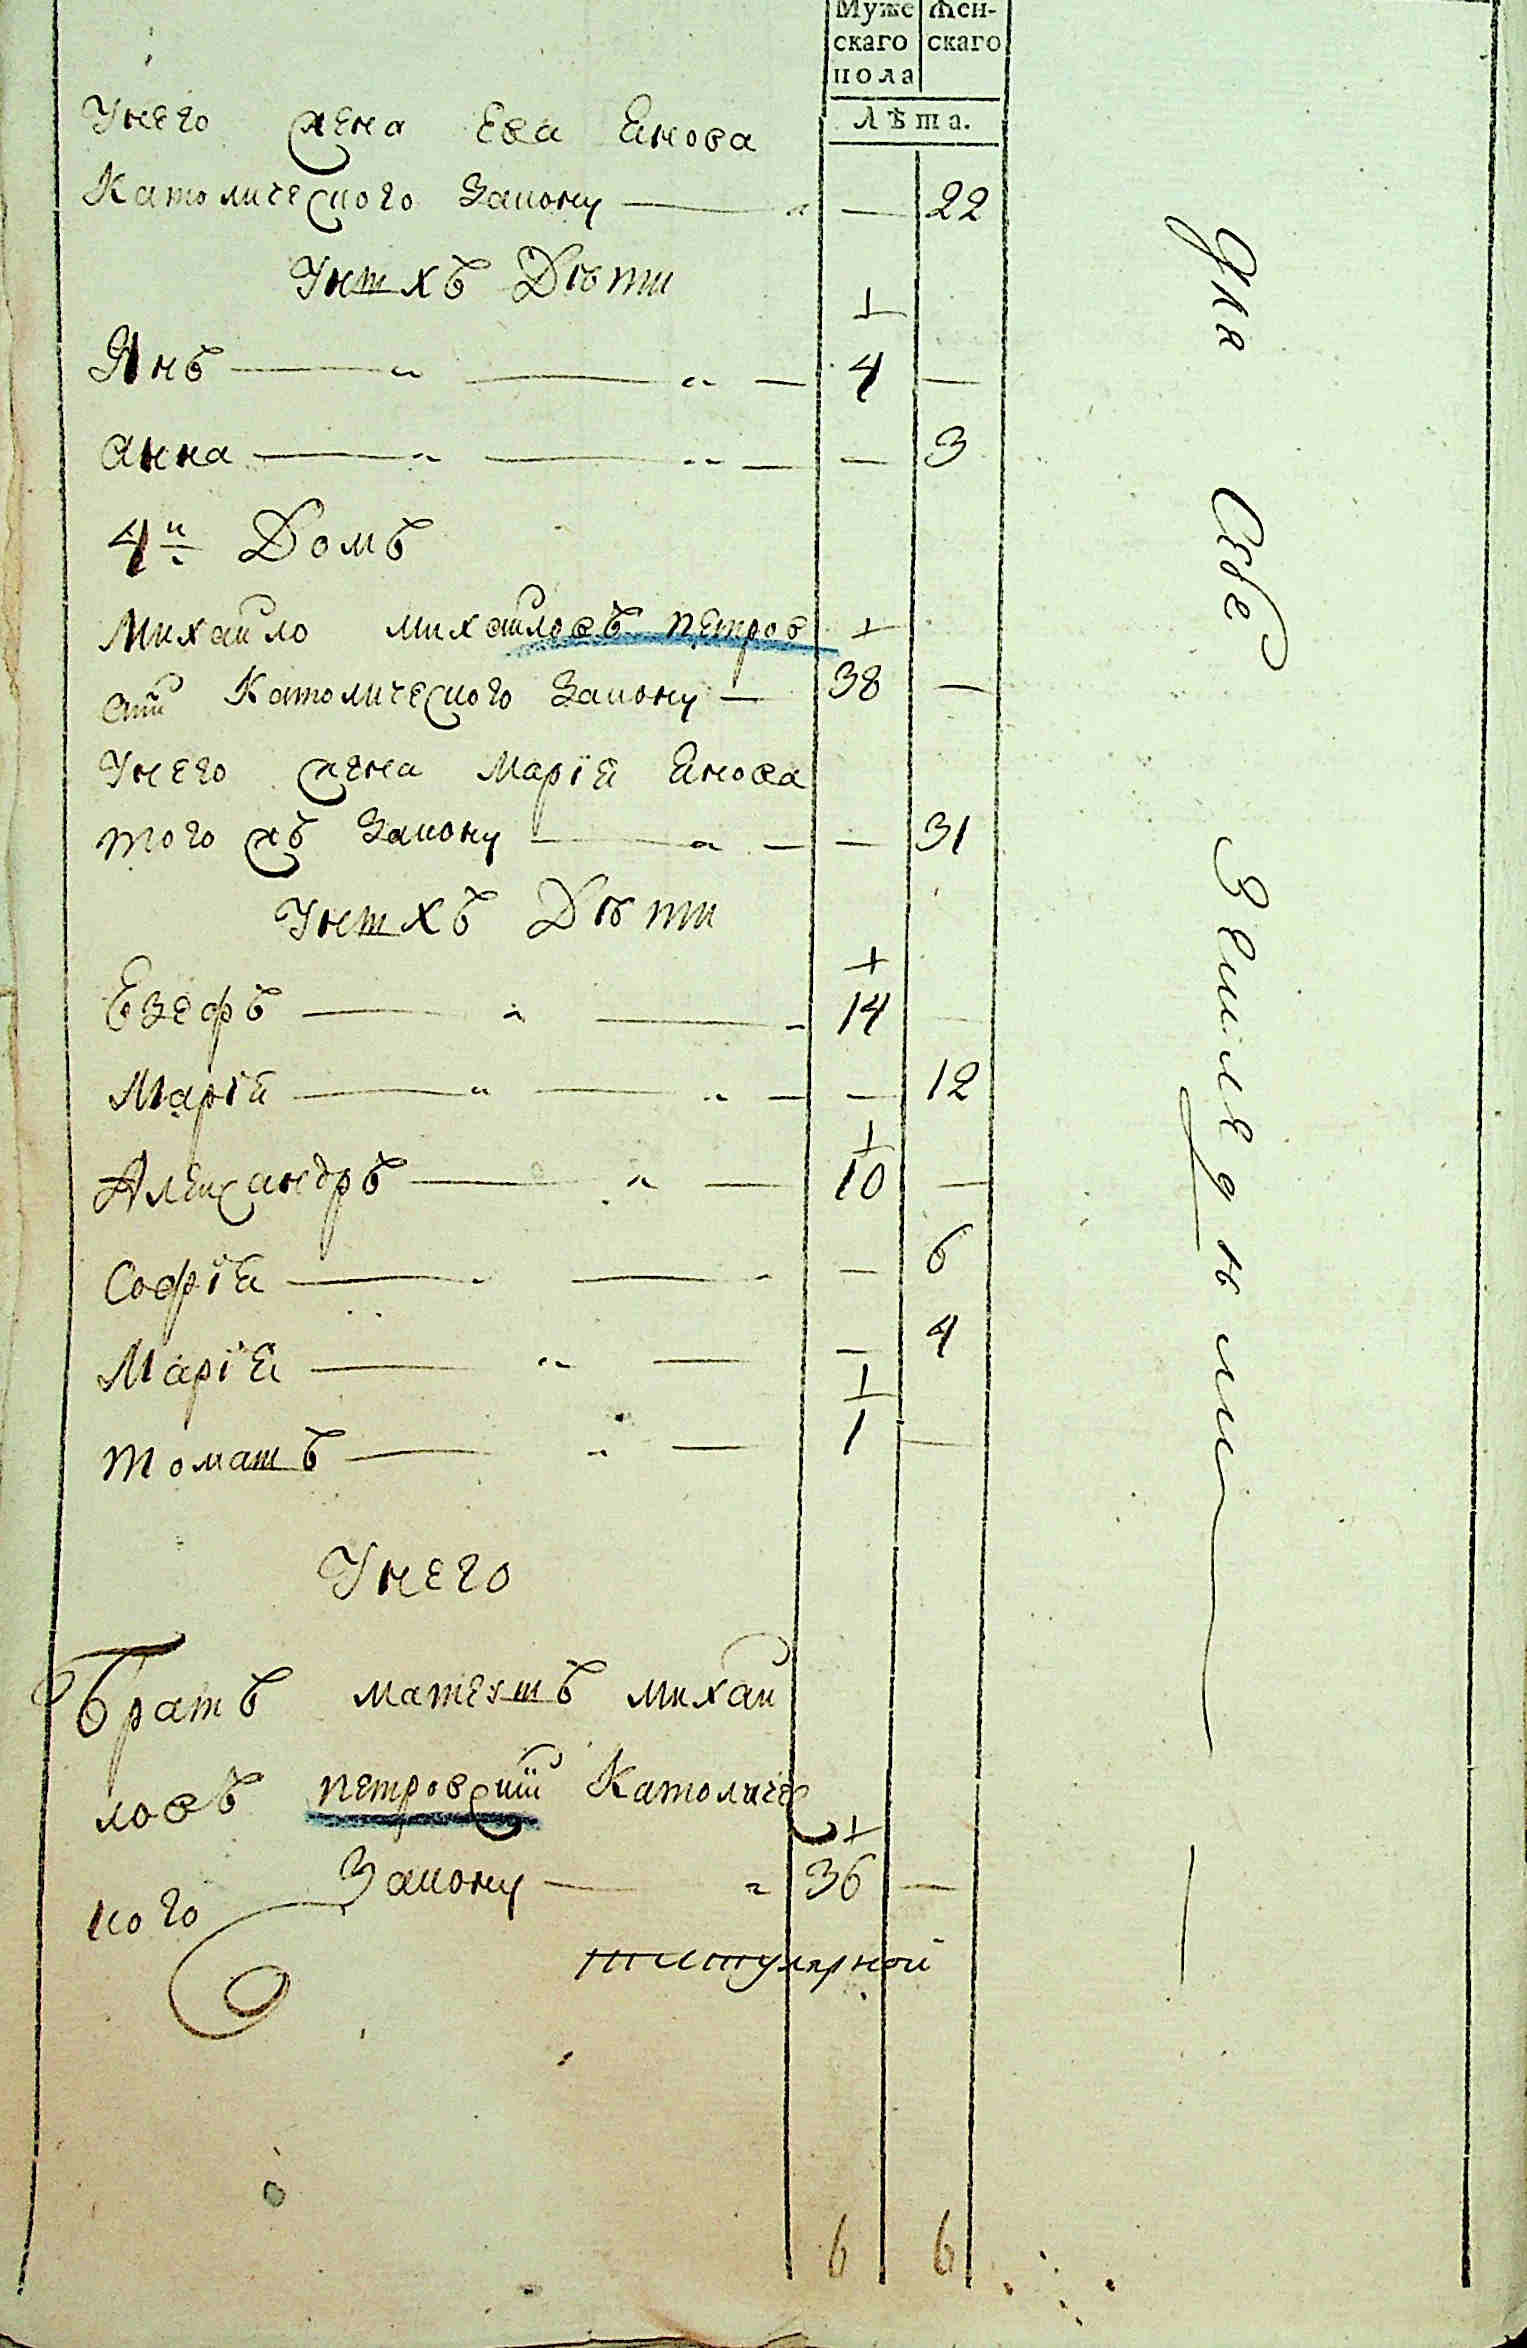 Муже Жен-
скаго скаго
пола
Лѣта.
У него жена Ева Янова
Католического Закону — 22
У нихъ Дѣти
Янъ 4 —
Анна — 3
4й Домъ
Михайло Михайловъ Петров
ский Католического Закону 38 —
У него жена Марія Янова
того жъ Закону — 31
У нихъ Дѣти
Езефъ 14
Марія — 12
Александръ 10 —
Софія — 6
Марія — 4
Томашъ 1 —
У него
Братъ Матеушъ Михай
ловъ Петровский Католичес
кого Закону 36 —
титулярной
6 6